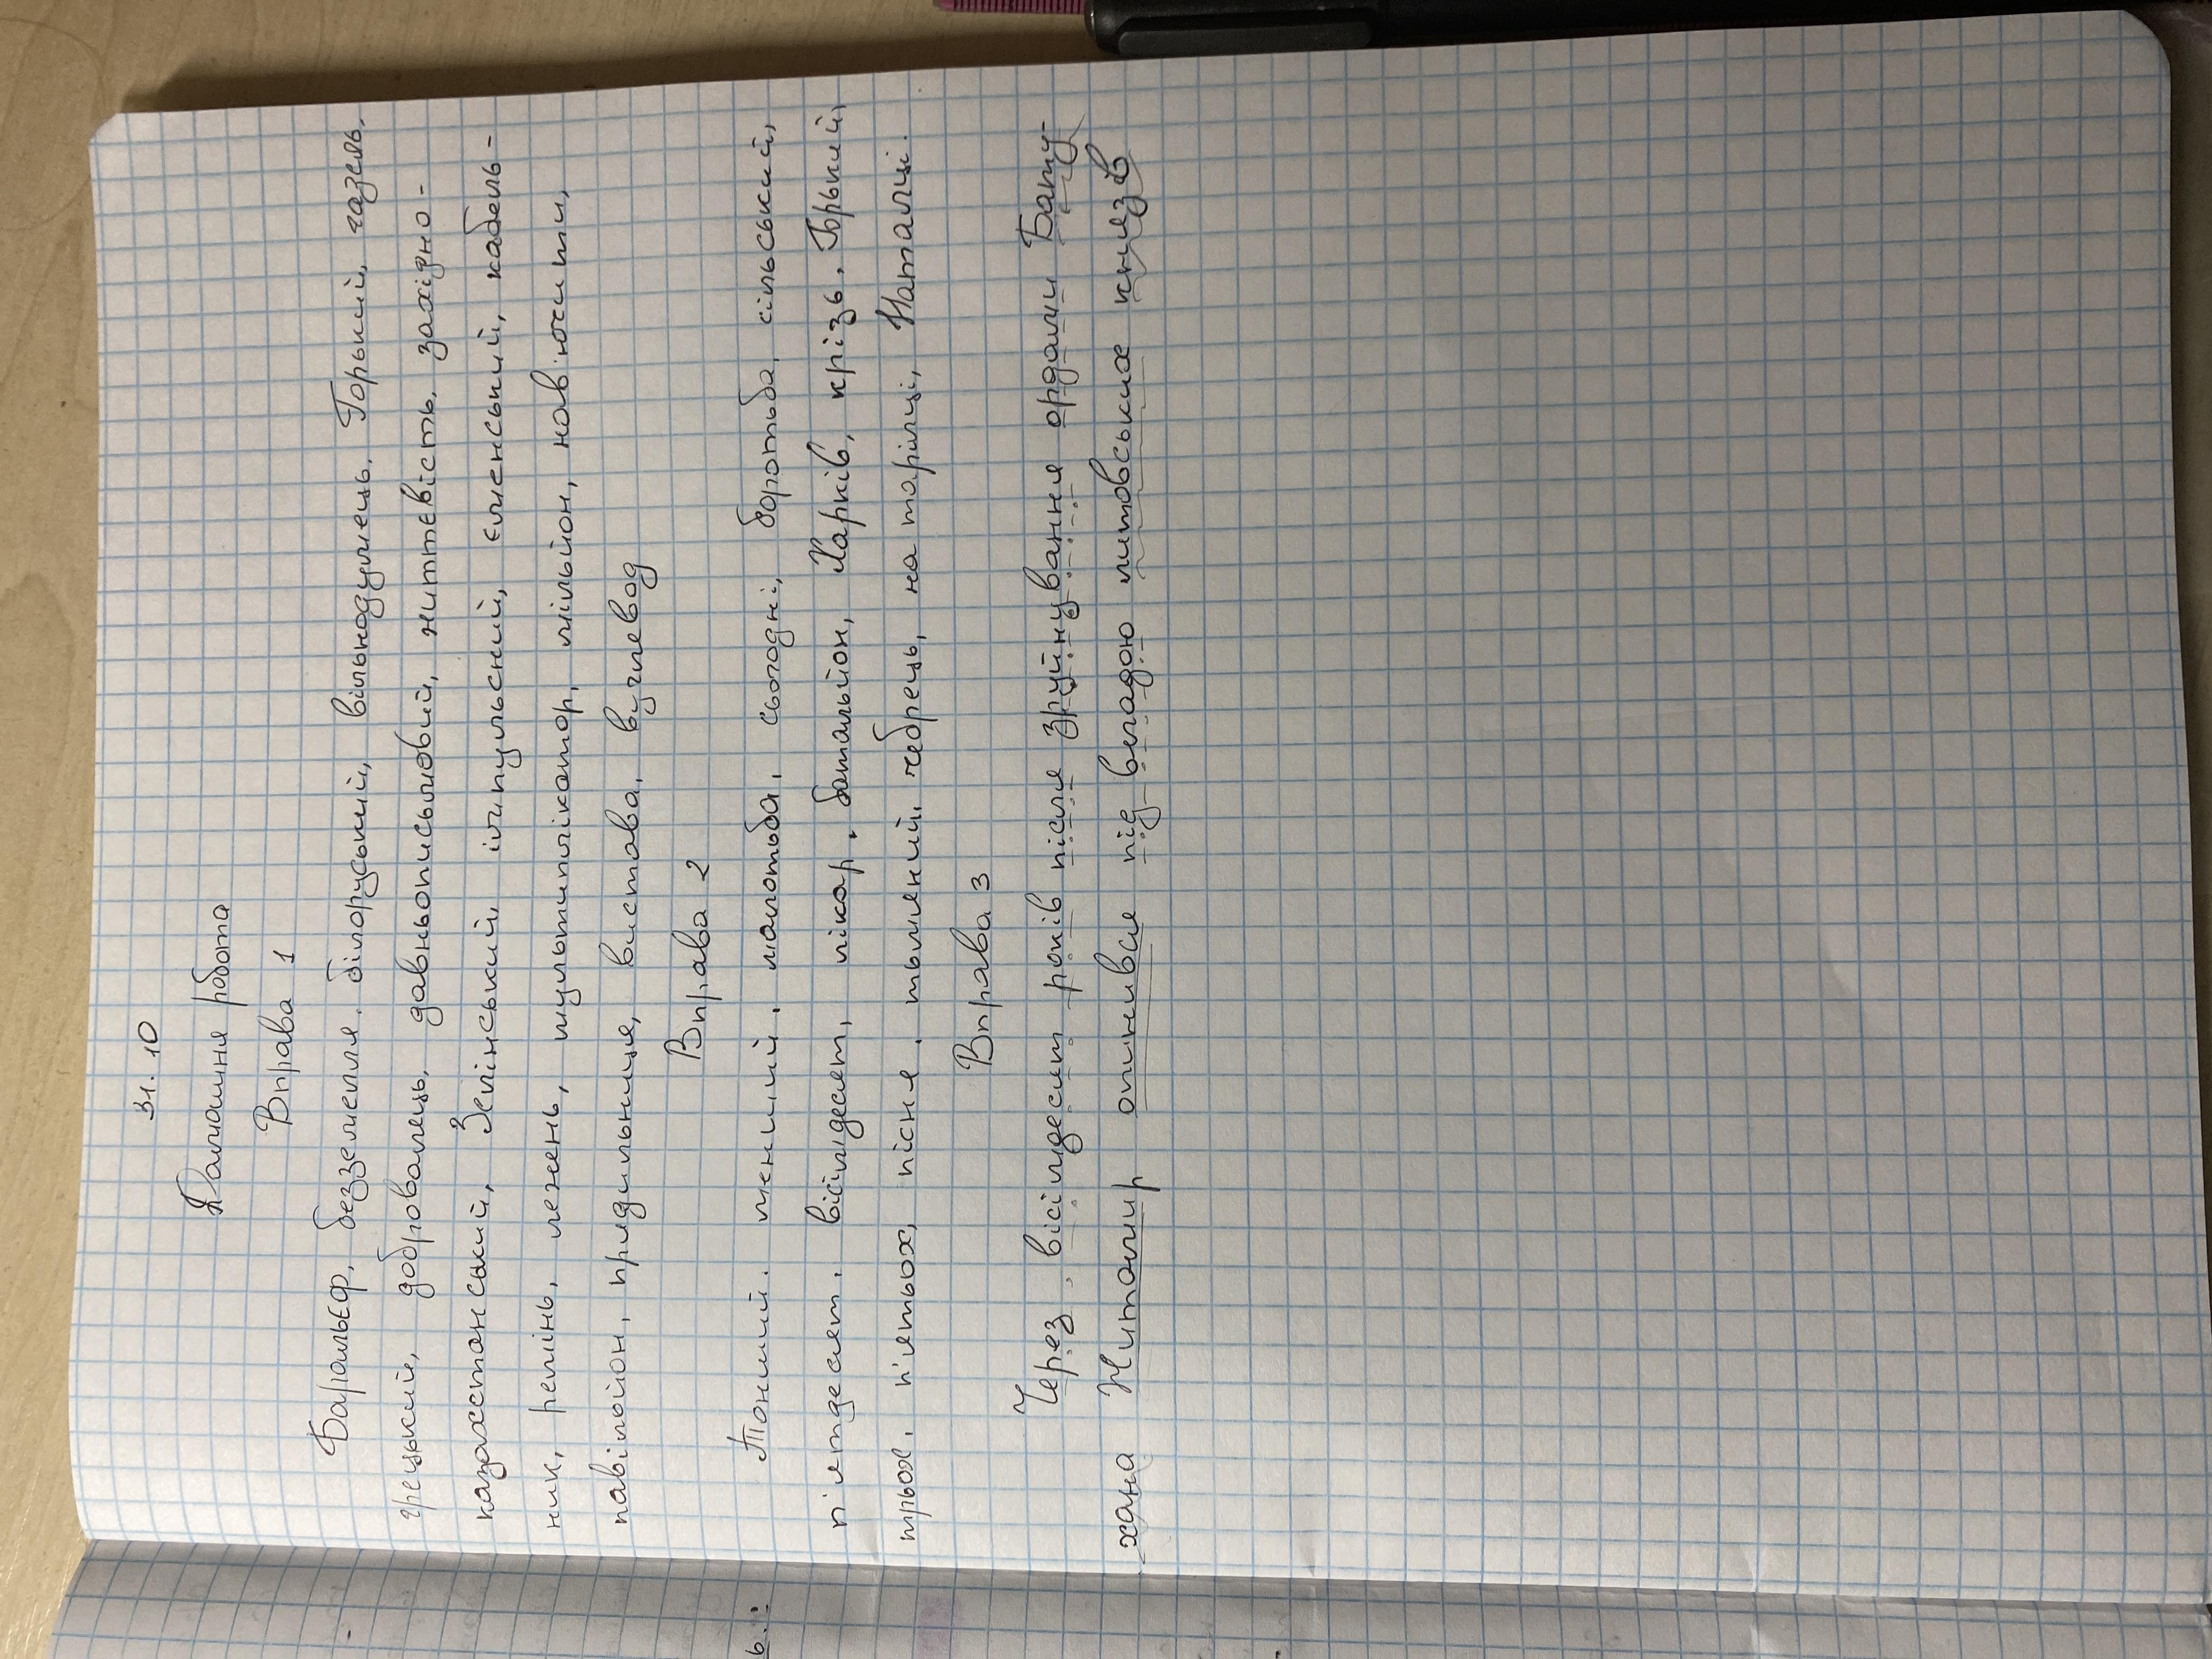 31.10
Домашня робота
Вправа 1
Барельєф, безземелля, білоруський, вільнодумець, Горький, газель,
грецький, доброволець, давньописьмовий, життєвість, західно-
казахстанський, Зелінський, імпульсний, єменський, кабель-
ник, ремінь, лежень, мультиплікатор, мільйон, нав'ючити,
павільйон, прядильниця, вистава, вуглевод
Вправа 2
Тонший, менший, молотьба, сьогодні, боротьба, сільський,
п'ятдесят, вісімдесят, лікар, батальйон, Харків, крізь, Горький,
трьох, п'ятьох, пісня, тьмяний, чебрець, на тарілці, Наталці.
Вправа 3
Через вісімдесят років після зруйнування ордами Бату-
хана Житомир опинився під владою литовських князів